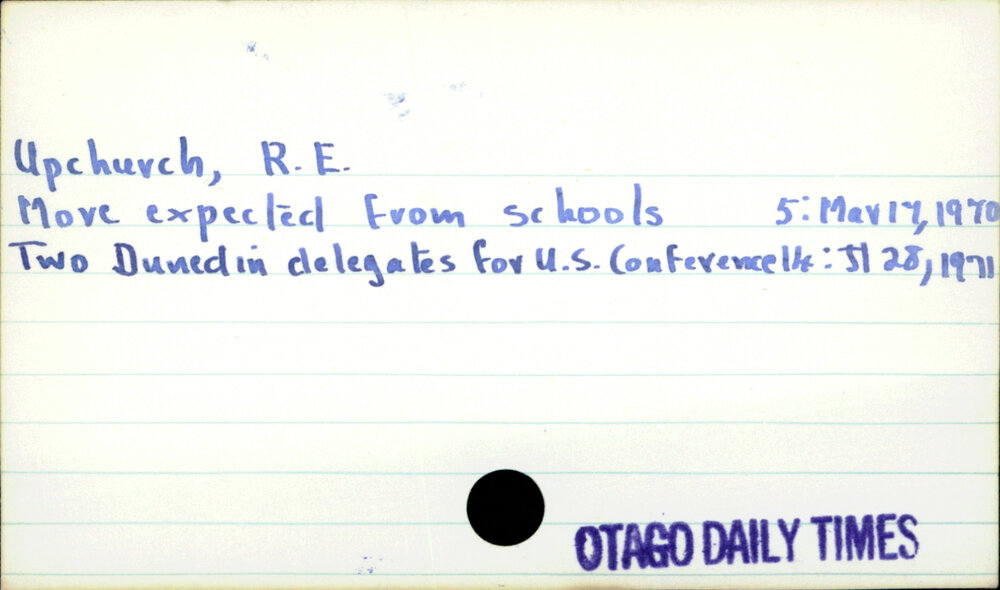 Upchurch, R. E.
Move expected from schools 5: Mar 17, 1970
Two Dunedin delegates for U.S. Conference 14: Jl 28, 1971
OTAGO DAILY TIMES